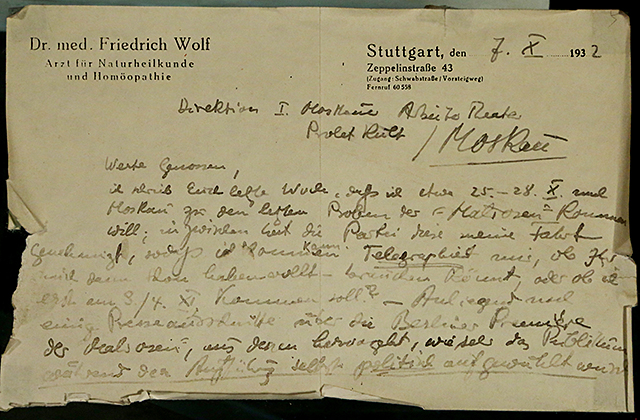 Dr. med. Friedrich Wolf
Arzt für Naturheilkunde
und Homöopathie
Stuttgart, den 7. X 1932
Zeppelinstraße 43
(Zugang: Schwabstraße/Vorsteigweg)
Fernruf 60 558
Direktion I. Moskauer Arbeiter Theater
Prolet Kult / Moskau
Werte Genossen,
ich schrieb Euch letzte Woche, dass ich etwa 25.–28. X. nach
Moskau zu den letzten Proben der "Matrosen" kommen
will; inzwischen hat die Partei diese meine Fahrt
genehmigt, sodass ich kommen kann. Telegraphiert mir, ob Ihr
mich dann schon haben wollt – könnt, oder ob ich
erst am 3./4. XI kommen soll? – Anliegend noch
einige Presseausschnitte über die Berliner Premiere
der "Matrosen", aus denen hervorgeht, wie sehr das Publikum
während der Aufführung selbst politisch aufgewühlt wurde